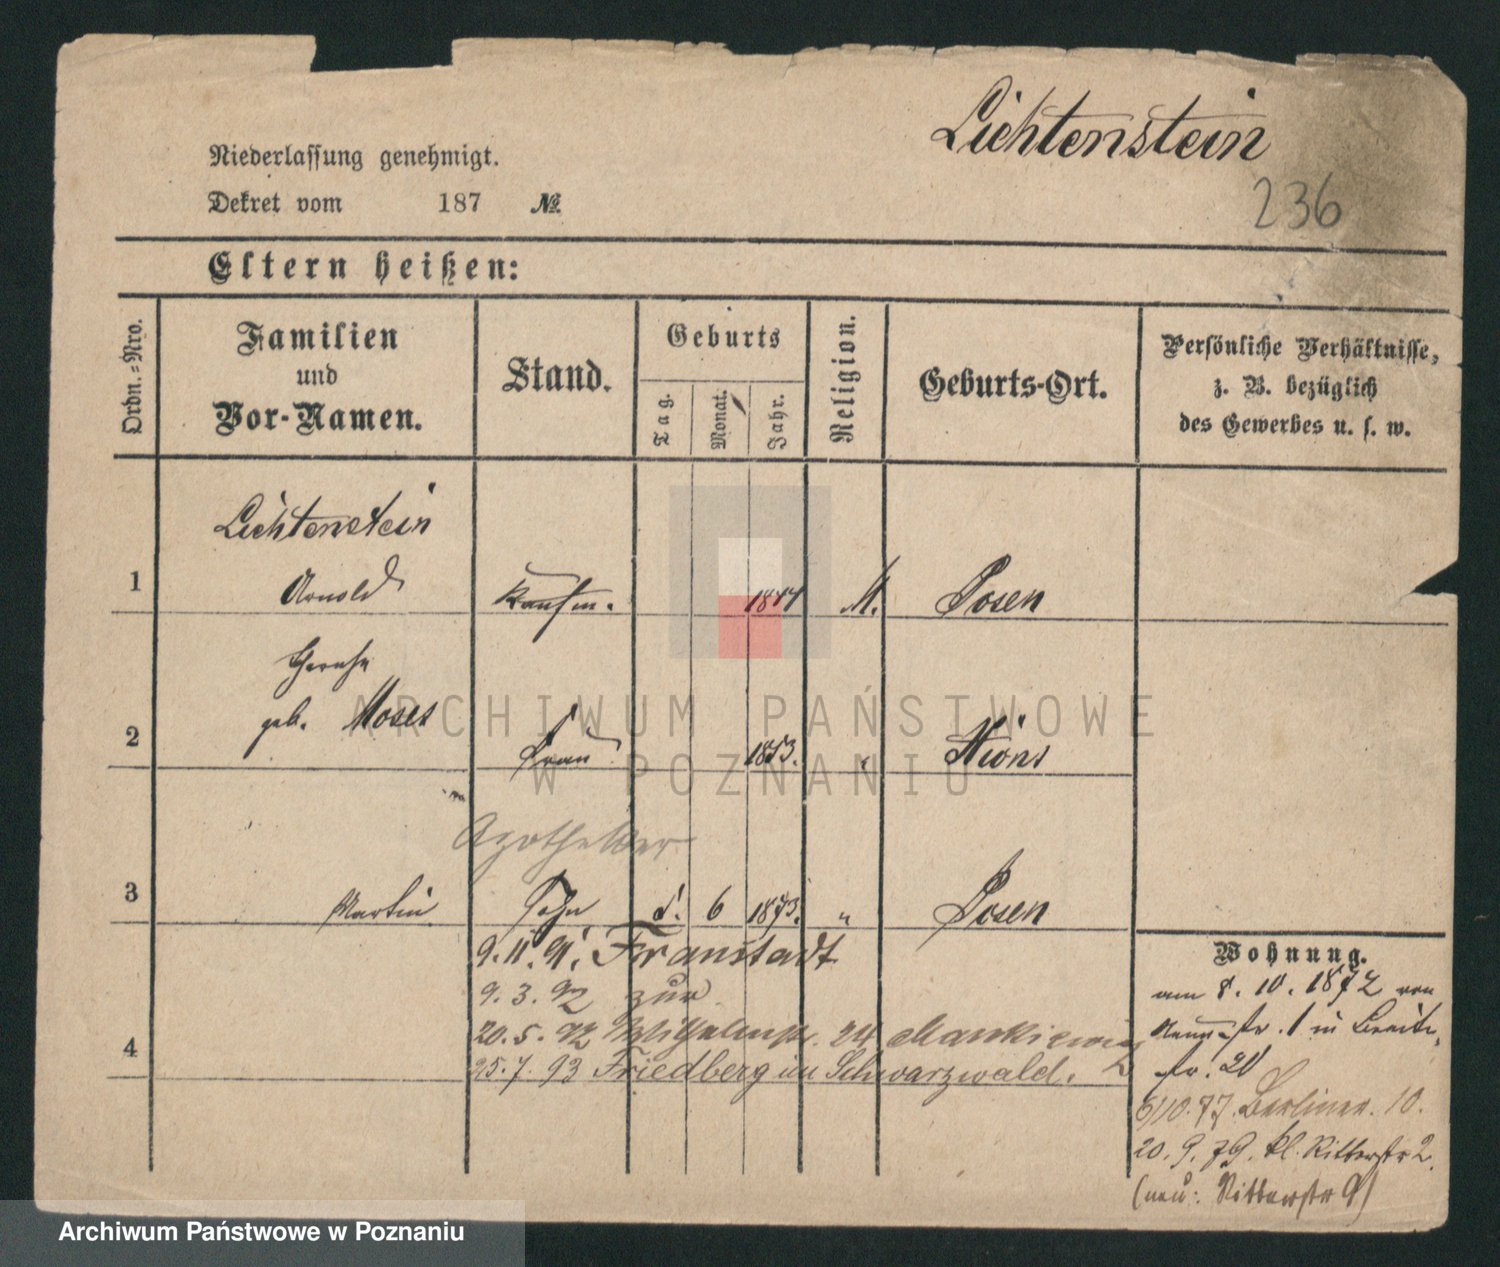 Lichtenstein
236
Niederlassung genehmigt.
Dekret vom 187 №
Eltern heißen:
Ordn.=Nro.
Familien
und
Vor-Namen.
Stand.
Geburts
Tag.
Monat.
Jahr.
Religion.
Geburts-Ort.
Persönliche Verhältnisse,
z. B. bezüglich
des Gewerbes u. s. w.
Lichtenstein
1 Arnold Kaufm. 1844 M. Posen
geb. Moses
2 Frau 1853. "
Apotheker
3 Martin Sohn 6 1873. " Posen
9.11.91. Fraustadt
9.3.92 zur
20.5.92 Wilhelmstr. 24 Mankiewicz
25.7.93 Friedberg im Schwarzwald.
4
Wohnung.
am 8.10.1872 von
str. 1 in Breite-
str. 20
5/10.77. Berliner. 10.
20.9.79. kl. Ritterstr 2.
(neu: Ritterstr 9)
ARCHIWUM PAŃSTWOWE
W POZNANIU
Archiwum Państwowe w Poznaniu